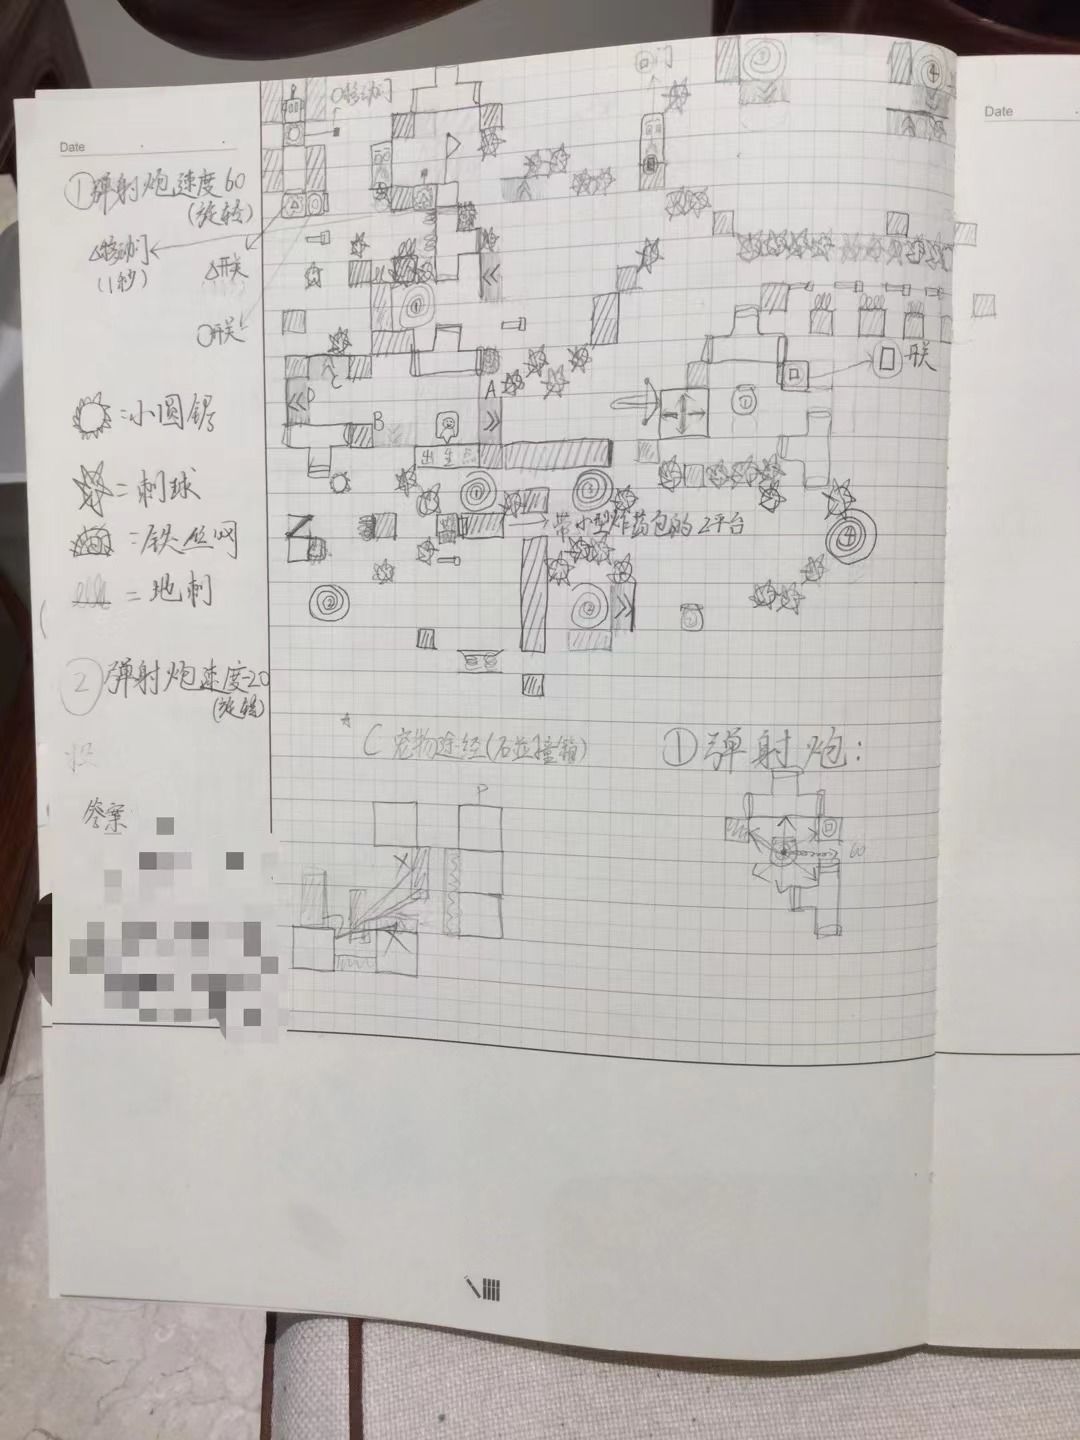 Date
Date
①弹射炮速度60
(旋转)
△移动门
(1秒)
△开关
○开关
○移动门
口门
口开关
①
②
④
A
B
C
D
出生点
=小圆锯
=刺球
=铁丝网
=地刺
带小型炸药包的Z平台
②弹射炮速度-20
(旋转)
C 宠物途经(石粒撞箱)
①弹射炮:
答案
P
60